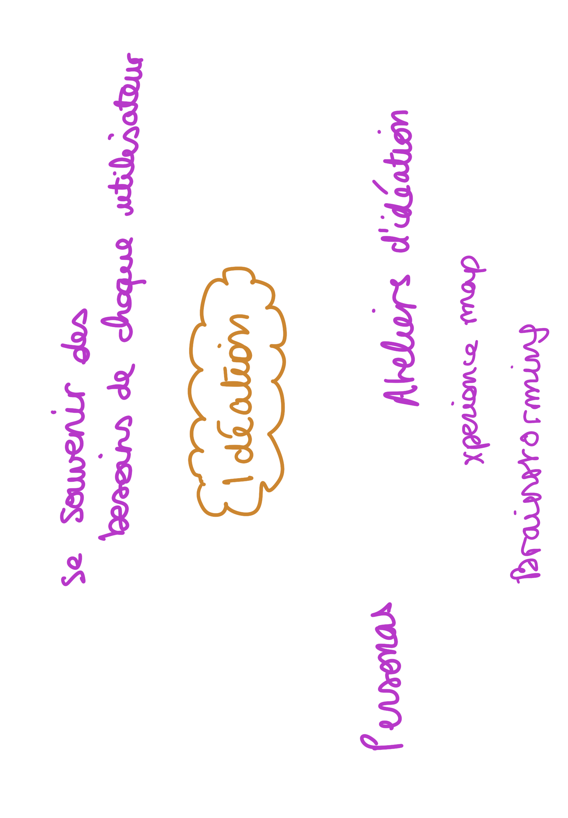 se souvenir des
besoins de chaque utilisateur
Idéation
Personas
Ateliers d'idéation
xperience map
Brainstorming